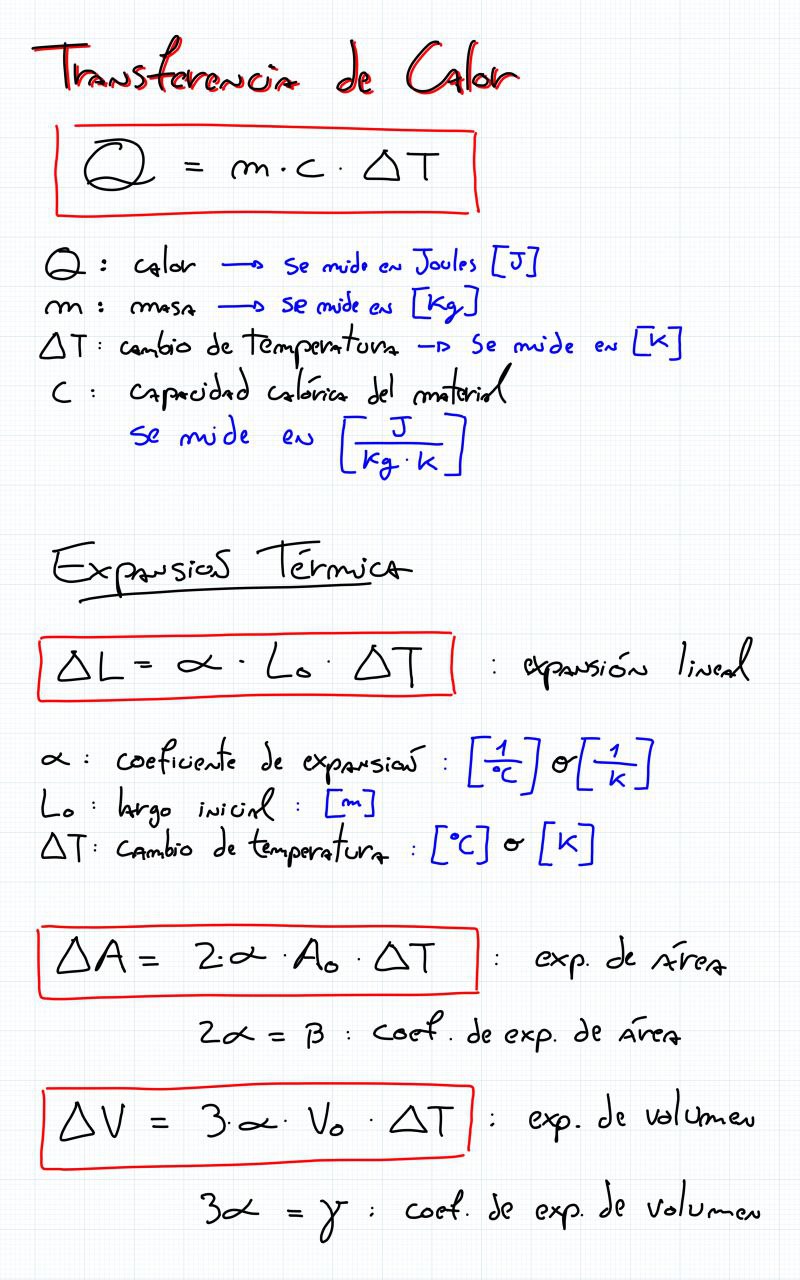 Transferencia de Calor
Q = m · c · ΔT
Q : calor → se mide en Joules [J]
m : masa → se mide en [Kg]
ΔT : cambio de temperatura → se mide en [K]
C : capacidad calórica del material
se mide en [J / Kg · K]
Expansión Térmica
ΔL = α · L₀ · ΔT : expansión lineal
α : coeficiente de expansión : [1/°C] o [1/K]
L₀ : largo inicial : [m]
ΔT : cambio de temperatura : [°C] o [K]
ΔA = 2·α · A₀ · ΔT : exp. de área
2α = β : coef. de exp. de área
ΔV = 3·α · V₀ · ΔT : exp. de volumen
3α = γ : coef. de exp. de volumen